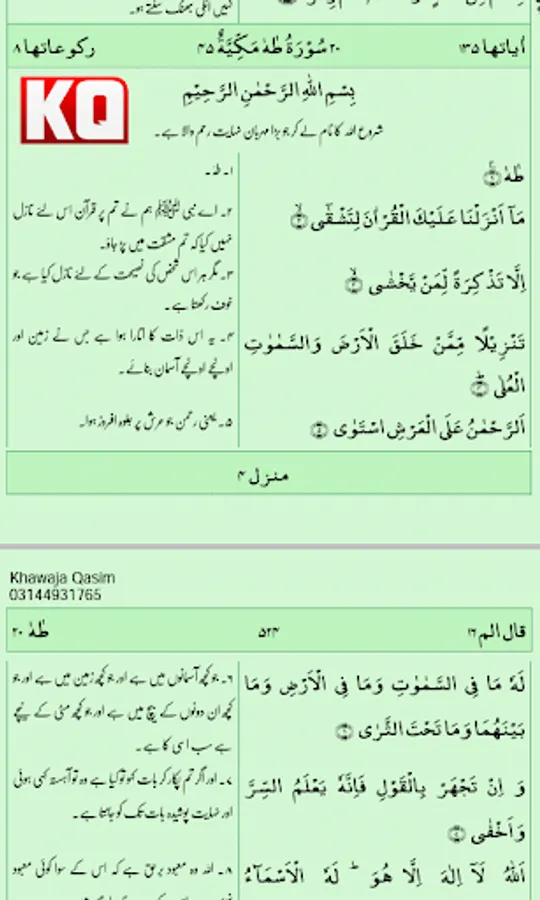 نہیں انکی بھنک سکتے ہو۔
اٰیاتھا ۱۳۵ ۲۰ سُوْرَۃُ طٰہٰ مَکِّیَّۃٌ ۴۵ رکوعاتھا ۸
KQ
بِسْمِ اللّٰهِ الرَّحْمٰنِ الرَّحِيْمِ
شروع اللہ کا نام لے کر جو بڑا مہربان نہایت رحم والا ہے۔
طٰهٰ ۝۱
۱۔ طہٰ۔
مَاۤ اَنْزَلْنَا عَلَيْكَ الْقُرْاٰنَ لِتَشْقٰۤى ۝۲
۲۔ اے نبی ﷺ ہم نے تم پر قرآن اس لئے نازل
نہیں کیا کہ تم مشقت میں پڑ جاؤ۔
اِلَّا تَذْكِرَةً لِّمَنْ يَّخْشٰى ۝۳
۳۔ مگر ہر اس شخص کی نصیحت کے لئے نازل کیا ہے جو
خوف رکھتا ہے۔
تَنْزِيْلًا مِّمَّنْ خَلَقَ الْاَرْضَ وَالسَّمٰوٰتِ
الْعُلٰى ۝۴
۴۔ یہ اس ذات کا اتارا ہوا ہے جس نے زمین اور
اونچے اونچے آسمان بنائے۔
اَلرَّحْمٰنُ عَلَى الْعَرْشِ اسْتَوٰى ۝۵
۵۔ یعنی رحمن جو عرش پر جلوہ افروز ہوا۔
منزل ۴
Khawaja Qasim
03144931765
قال الم ۱۶ ۵۲۳ طٰہٰ ۲۰
لَهٗ مَا فِى السَّمٰوٰتِ وَمَا فِى الْاَرْضِ وَمَا
بَيْنَهُمَا وَمَا تَحْتَ الثَّرٰى ۝۶
۶۔ جو کچھ آسمانوں میں ہے اور جو کچھ زمین میں ہے اور جو
کچھ ان دونوں کے بیچ میں ہے اور جو کچھ مٹی کے نیچے
ہے سب اسی کا ہے۔
وَ اِنْ تَجْهَرْ بِالْقَوْلِ فَاِنَّهٗ يَعْلَمُ السِّرَّ
وَاَخْفٰى ۝۷
۷۔ اور اگر تم پکار کر بات کہو تو کیا ہے وہ تو آہستہ کہی ہوئی
اور نہایت پوشیدہ بات تک کو جانتا ہے۔
اَللّٰهُ لَاۤ اِلٰهَ اِلَّا هُوَ ؕ لَهُ الْاَسْمَآءُ
۸۔ اللہ وہ معبود برحق ہے کہ اس کے سوا کوئی معبود